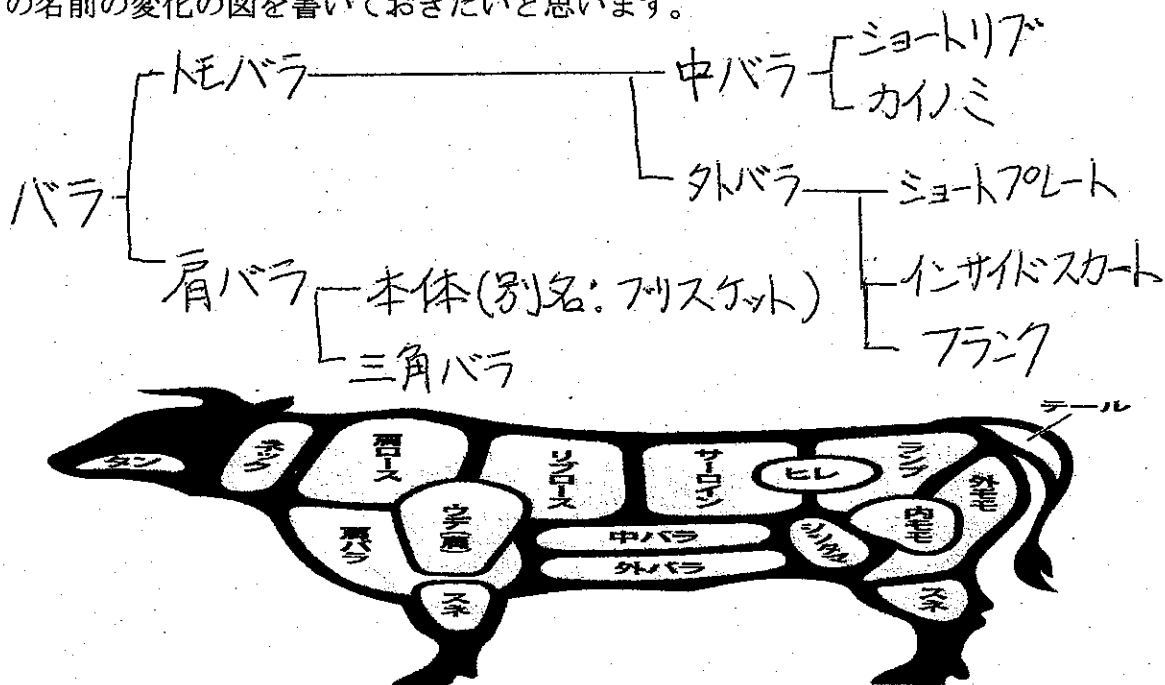 の名前の変化の図を書いておきたいと思います。
トモバラ
中バラ
ショートリブ
カイノミ
バラ
外バラ
ショートプレート
インサイドスカート
フランク
肩バラ
本体(別名:ブリスケット)
三角バラ
テール
タン
ネック
肩ロース
リブロース
サーロイン
ヒレ
ランプ
外モモ
内モモ
シンタマ
肩バラ
ウデ(肩)
中バラ
外バラ
スネ
スネ